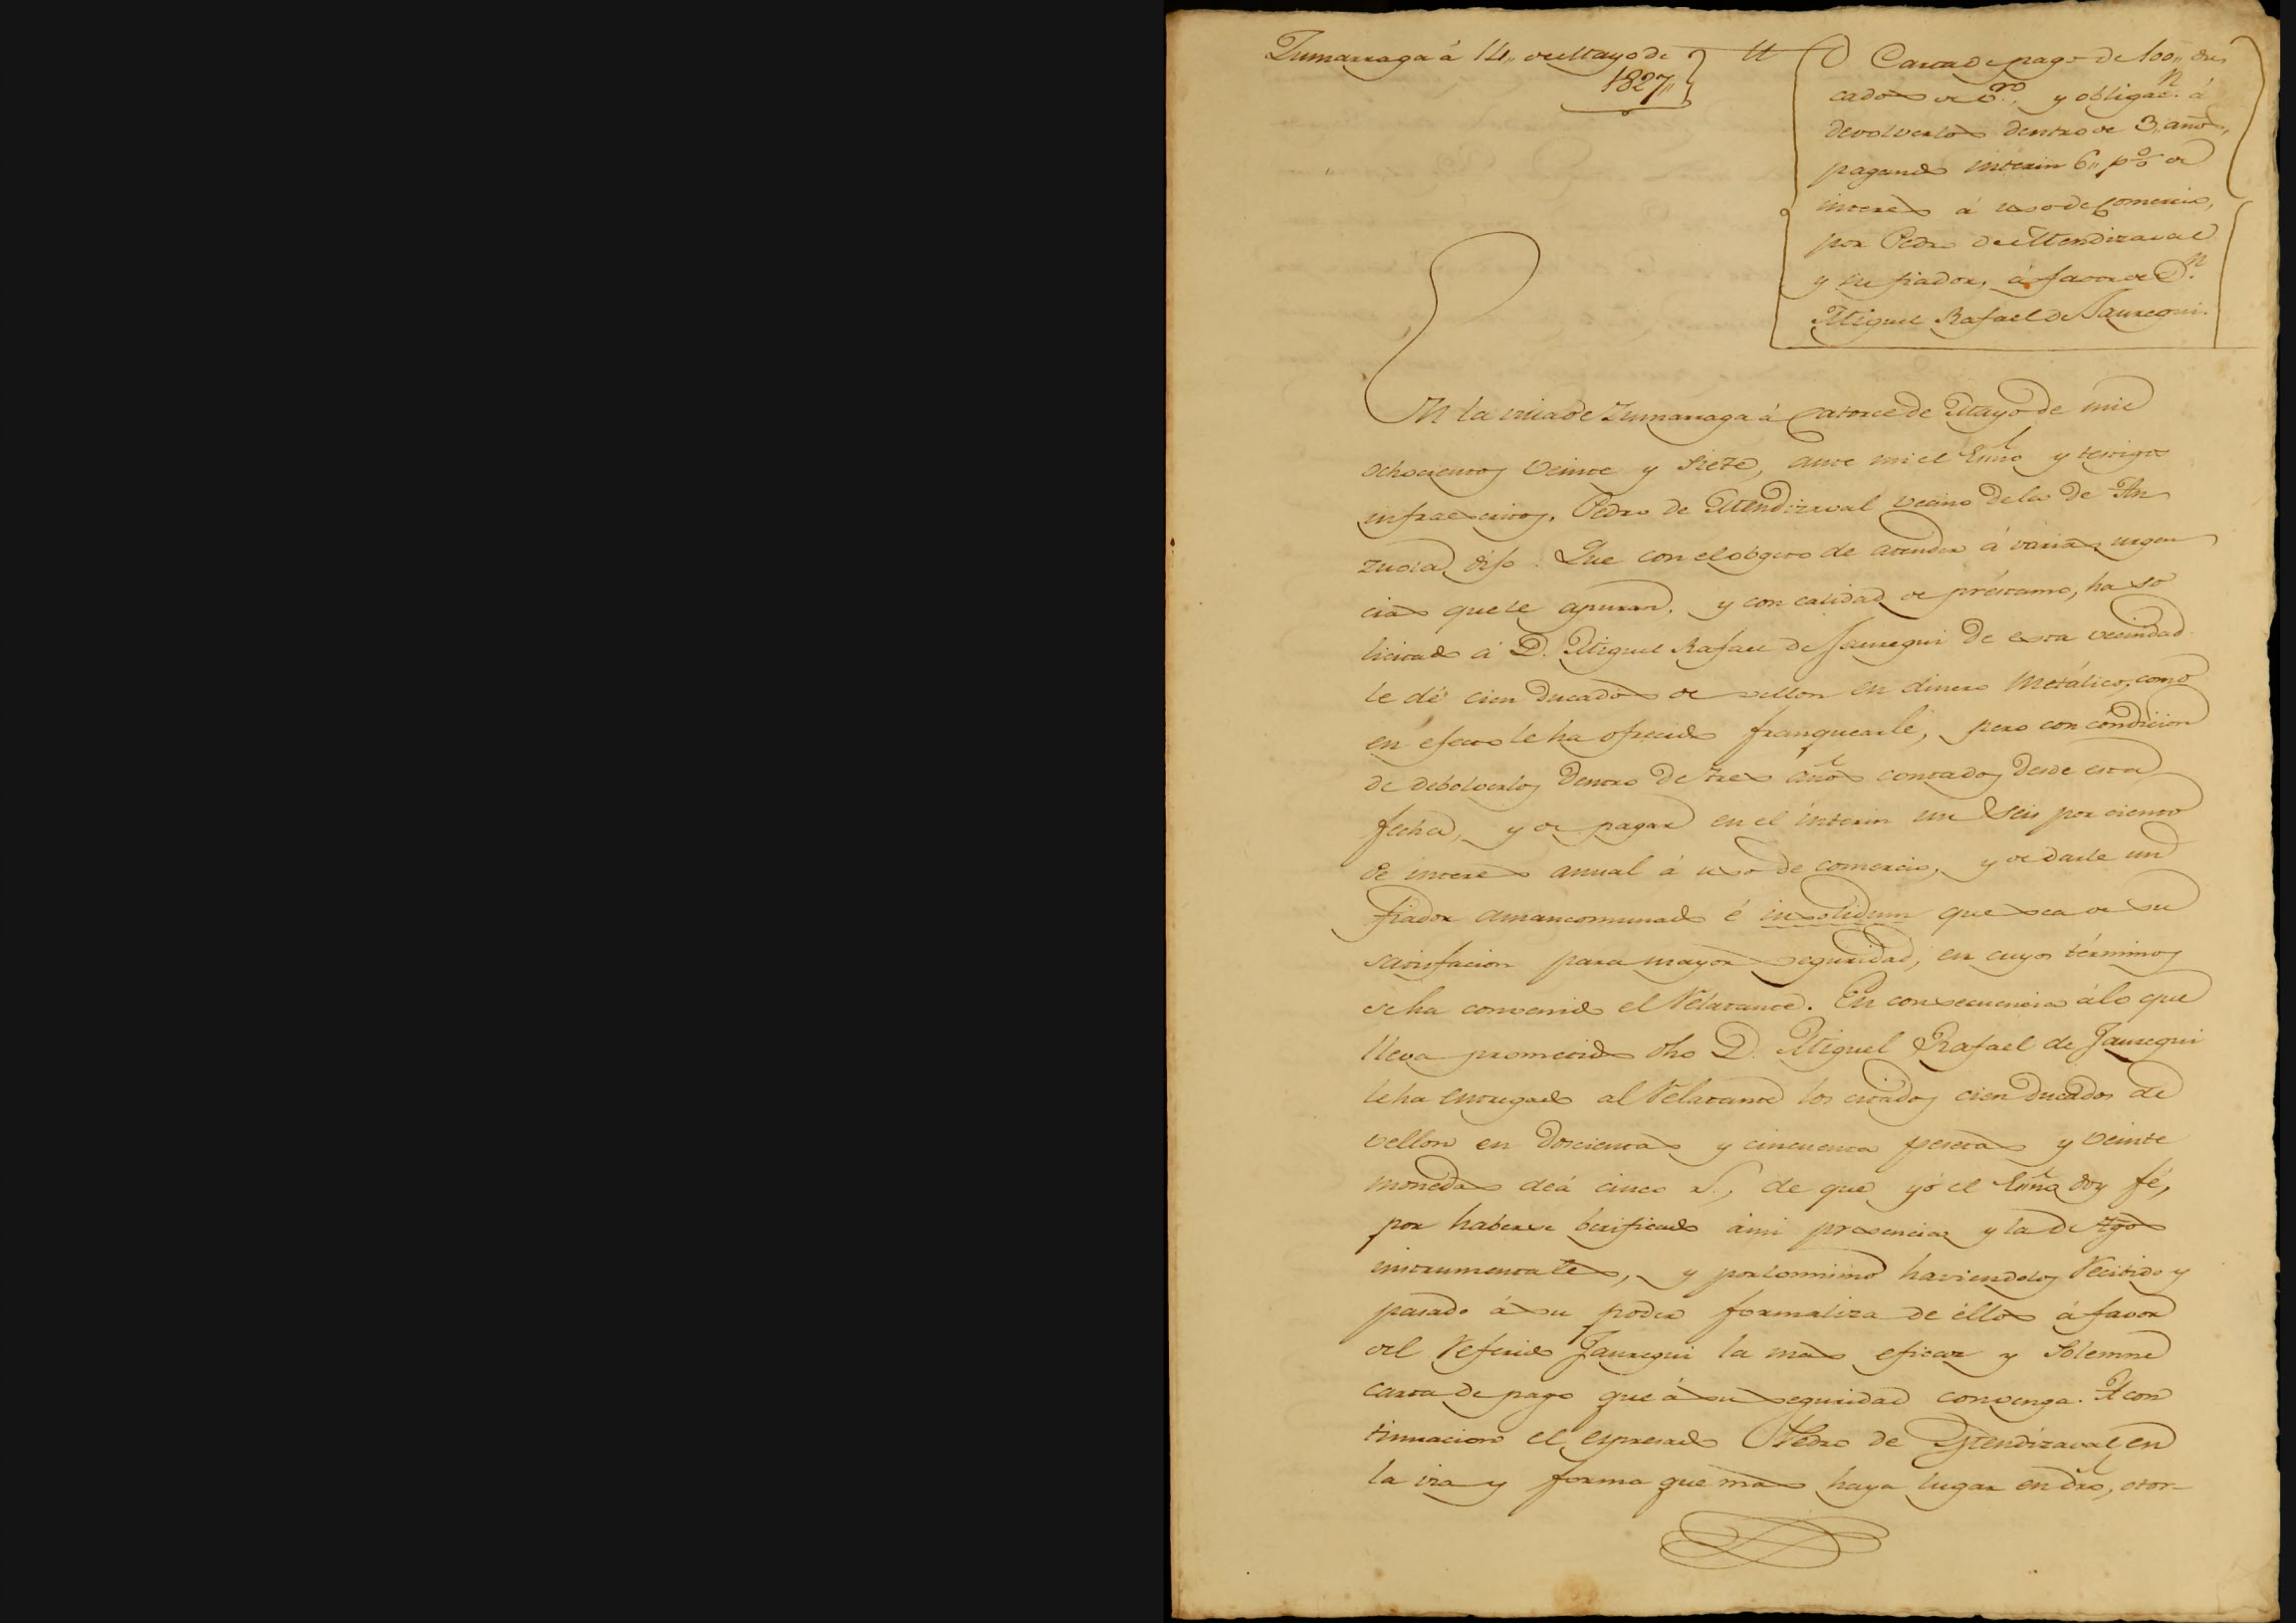 Zumarraga á 14,, de Mayo de
1827,,
Carta de pago de 100,, du
cados de vo., y obligacn. á
devolverlos dentro de 3,, años,
pagando interin 6,, p% de
interes á uso de comercio,
por Pedro de Mendizaval
y su fiador, á favor de Dn.
Miguel Rafael de Jauregui.
En la villa de Zumarraga á catorce de Mayo de mil
ochocientos veinte y siete, ante mi el Esno y testigos
infraescritos, Pedro de Mendizaval vecino de la de An
zuola, dijo: Que con el obgeto de atender á varias urgen
cias que le apuran, y con calidad de préstamo, ha so
licitado á D. Miguel Rafael de Jauregui de esta vecindad
le dé cien ducados de vellon en dinero metálico, como
en efecto le ha ofrecido franquearle, pero con condicion
de debolverlos dentro de tres años contados desde esta
fecha, y de pagar en el interin un seis por ciento
de interes anual á uso de comercio, y de darle un
fiador amancomunado é insolidum que sea de su
satisfacion para mayor seguridad, en cuyos términos
se ha convenido el Relatante. En consecuencia á lo que
lleva prometido dho D. Miguel Rafael de Jauregui
le ha entregado al Relatante los citados cien ducados de
vellon en doscientas y cincuenta pesetas y veinte
monedas de á cinco rs., de que yó el Esno doy fé,
por haberse berificado á mi presencia y la de tgos
instrumentales, y por lo mismo haviendolos Recibido y
pasado á su poder formaliza de éllos á favor
del Referido Jauregui la mas eficaz y solemne
carta de pago que á su seguridad convenga. A con
tinuacion el espresado Pedro de Mendizaval, en
la via y forma que mas haya lugar en dro, otor-